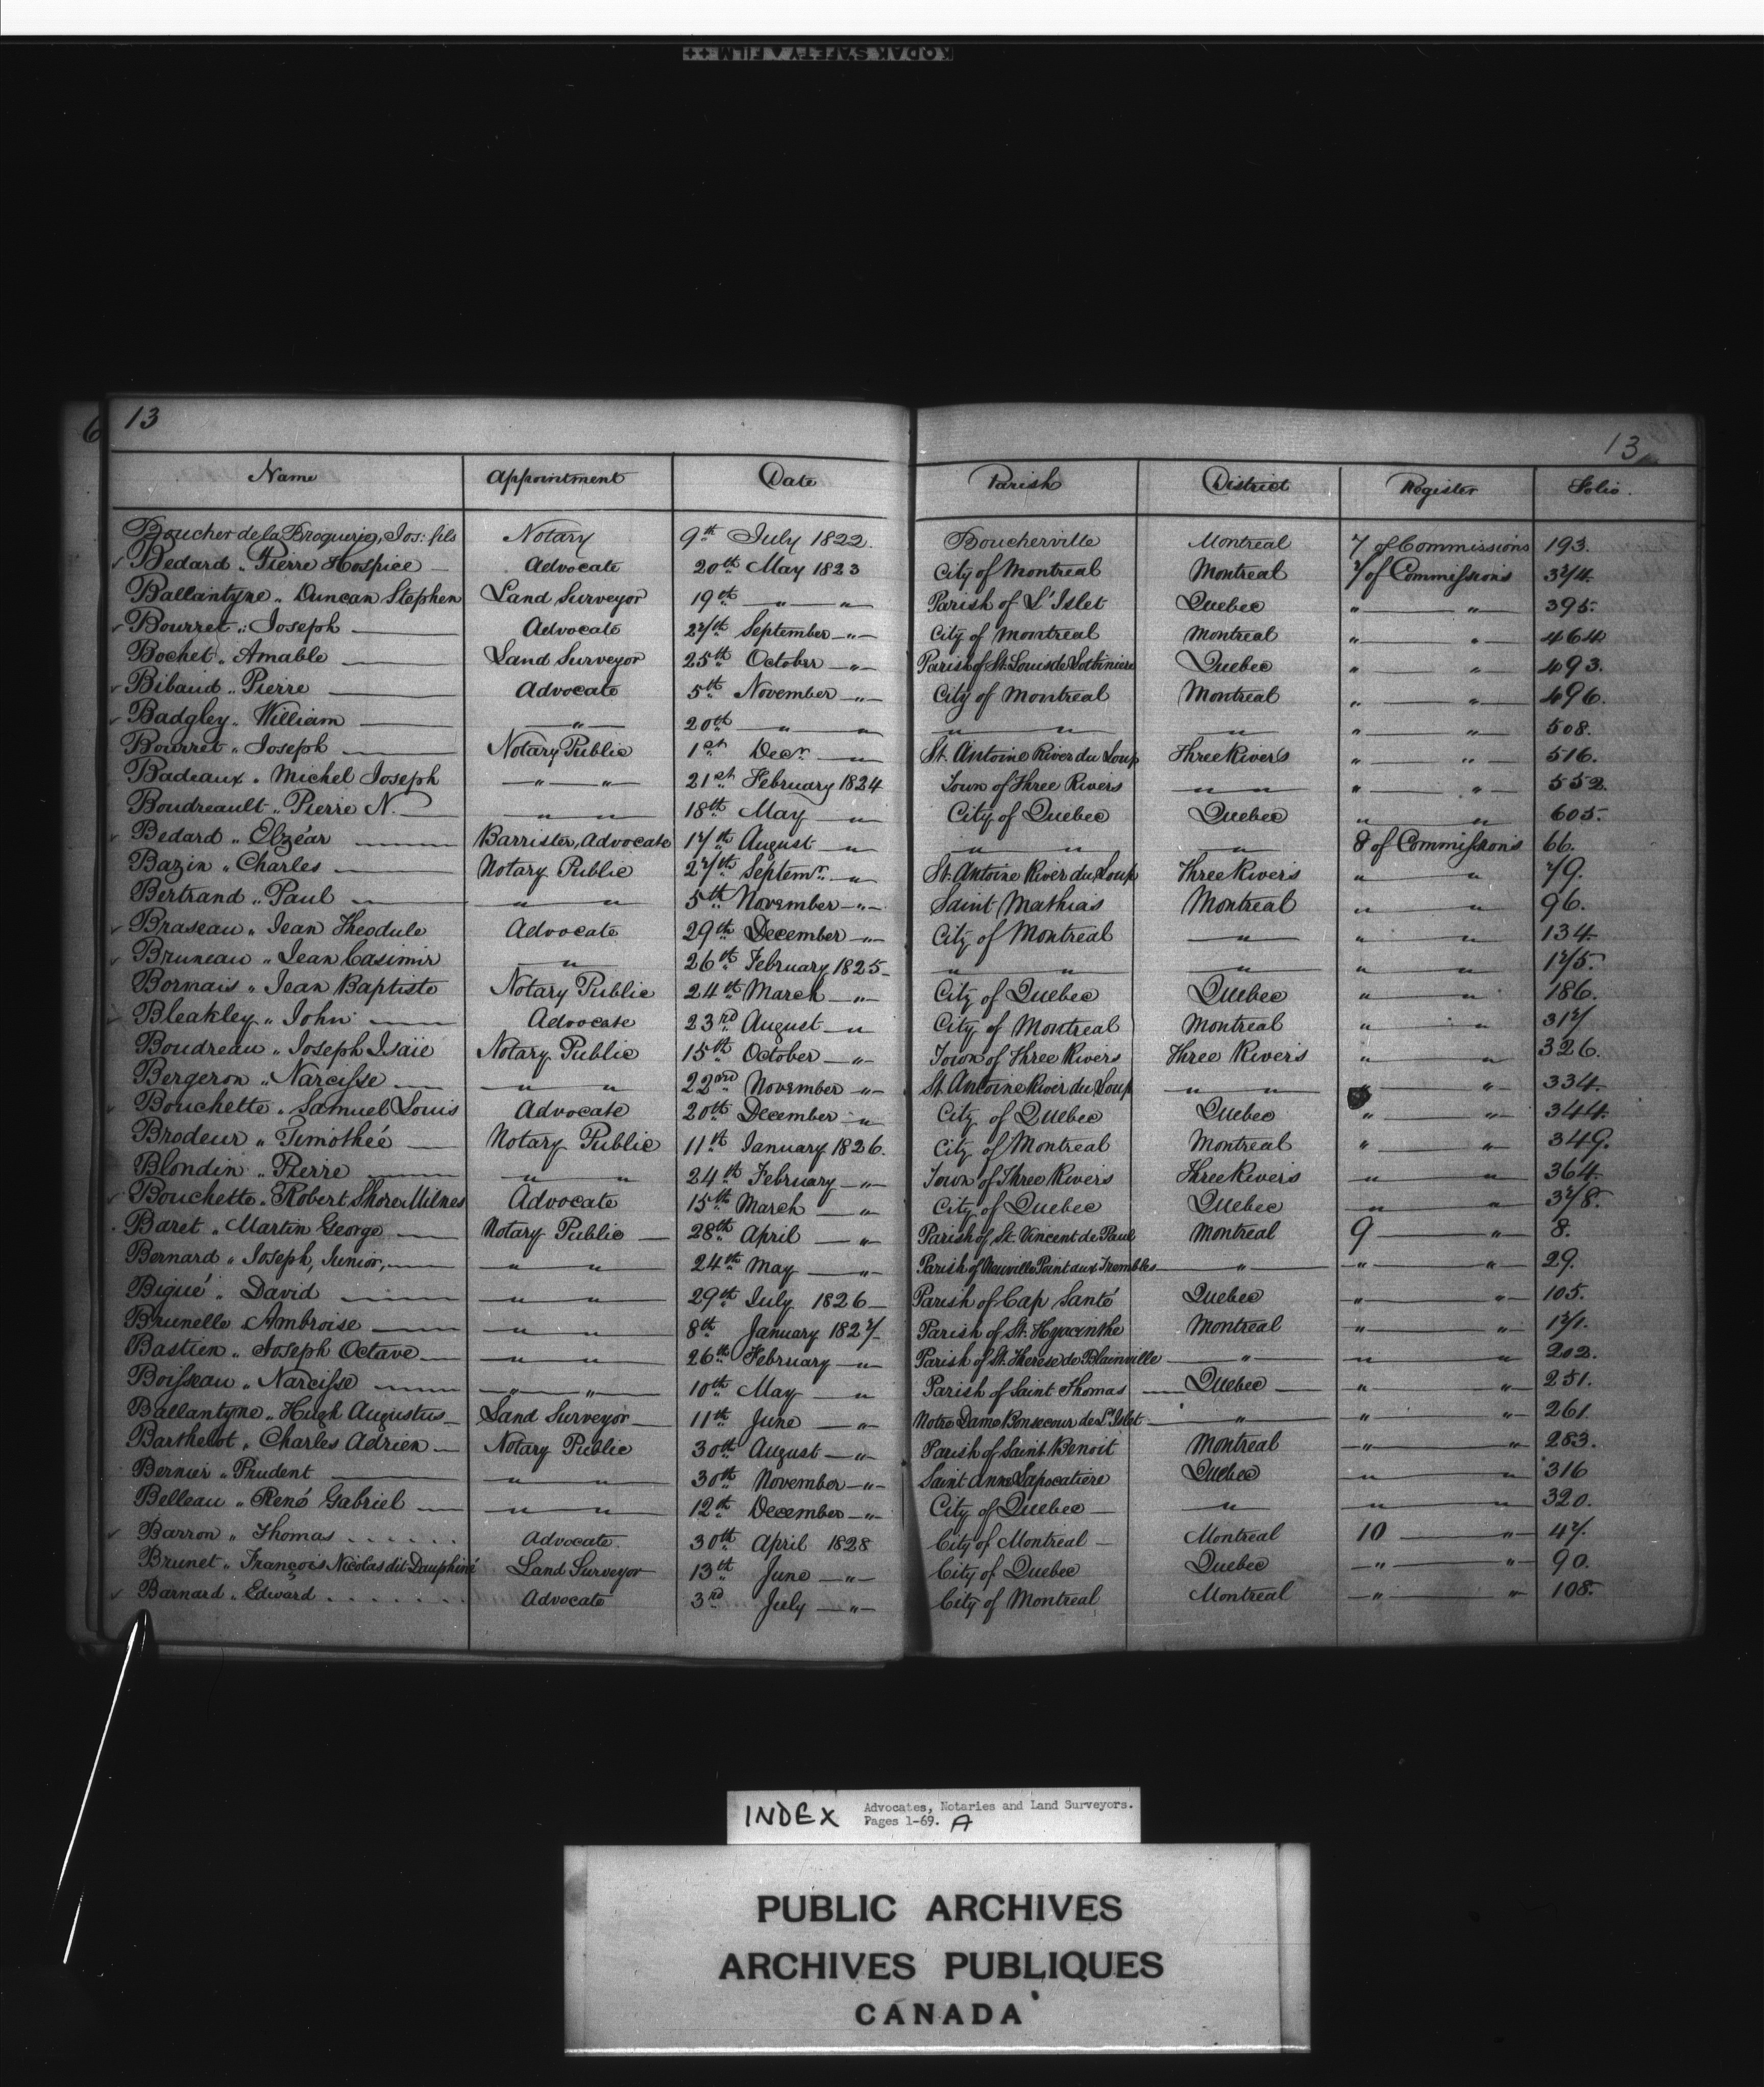 KODAK SAFETY FILM ++
6
13
13
Name Appointment Date Parish District Register Folio.
Boucher de la Broquerie, Jos: fils Notary 9th July 1822. Boucherville Montreal 7 of Commissions 193.
Bedard „ Pierre Hospice — Advocate 20th May 1823 City of Montreal Montreal 7 of Commissions 374.
Ballantyne „ Duncan Stephen Land Surveyor 19th „ „ Parish of L'Islet Quebec „ „ 395.
Bourret „ Joseph — Advocate 27th September „ City of Montreal Montreal „ „ 464
Bochet „ Amable — Land Surveyor 25th October „ Parish of St. Louis de Lotbiniere Quebec „ „ 493.
Bibaud „ Pierre — Advocate 5th November „ City of Montreal Montreal „ „ 496.
Badgley „ William — „ 20th „ „ „ „ „ „ „ 508.
Bourret „ Joseph — Notary Public 1st Decr. „ St. Antoine River du Loup Three Rivers „ „ 516.
Badeaux „ Michel Joseph „ „ 21st February 1824 Town of Three Rivers „ „ „ „ 552.
Boudreault „ Pierre N. — „ „ 18th May „ City of Quebec Quebec „ „ 605.
Bedard „ Elzéar — Barrister, Advocate 17th August „ „ „ „ 8 of Commissions 66.
Bazin „ Charles — Notary Public 27th Septemr. „ St. Antoine River du Loup Three Rivers „ „ 79.
Bertrand „ Paul — „ „ 5th November „ Saint Mathias Montreal „ „ 96.
Braseau „ Jean Theodule Advocate 29th December „ City of Montreal „ „ „ 134.
Bruneau „ Jean Casimir „ 26th February 1825 „ „ „ „ „ 175.
Bornais „ Jean Baptiste Notary Public 24th March „ City of Quebec Quebec „ „ 186.
Bleakley „ John — Advocate 23rd August „ City of Montreal Montreal „ „ 317
Boudreau „ Joseph Isaïe Notary Public 15th October „ Town of Three Rivers Three Rivers „ „ 326.
Bergeron „ Narcisse — „ „ 22nd November „ St. Antoine River du Loup „ „ „ „ 334.
Bouchette „ Samuel Louis Advocate 20th December „ City of Quebec Quebec „ „ 344.
Brodeur „ Timothée — Notary Public 11th January 1826. City of Montreal Montreal „ „ 349.
Blondin „ Pierre — „ „ 24th February „ Town of Three Rivers Three Rivers „ „ 364.
Bouchette „ Robert Shore Milnes Advocate 15th March „ City of Quebec Quebec „ „ 378.
Baret „ Martin George — Notary Public 28th April „ Parish of St. Vincent de Paul Montreal 9 „ 8.
Bernard „ Joseph, Junior, — „ „ 24th May „ Parish of Neuville Point aux Trembles „ „ „ 29.
Bigué „ David — „ „ 29th July 1826 Parish of Cap Santé Quebec „ „ 105.
Brunelle „ Ambroise — „ „ 8th January 1827 Parish of St. Hyacinthe Montreal „ „ 171.
Bastien „ Joseph Octave — „ „ 26th February „ Parish of St. Therese de Blainville „ „ „ 202.
Boisseau „ Narcisse — „ „ 10th May „ Parish of Saint Thomas Quebec „ „ 251.
Ballantyne „ Hugh Augustus Land Surveyor 11th June „ Notre Dame Bonsecour de L'Islet „ „ „ 261.
Barthelot „ Charles Adrien — Notary Public 30th August „ Parish of Saint Benoit Montreal „ „ 283.
Bernier „ Prudent — „ „ 30th November „ Saint Anne Lapocatiere Quebec „ „ 316
Belleau „ René Gabriel — „ „ 12th December „ City of Quebec „ „ „ 320.
Barron „ Thomas . . . . . . Advocate 30th April 1828 City of Montreal Montreal 10 „ 47.
Brunet „ François Nicolas dit Dauphiné Land Surveyor 13th June „ City of Quebec Quebec „ „ 90.
Barnard „ Edward . . . . . . . Advocate 3rd July „ City of Montreal Montreal „ „ 108.
INDEX Advocates, Notaries and Land Surveyors.
Pages 1-69. A
PUBLIC ARCHIVES
ARCHIVES PUBLIQUES
CANADA